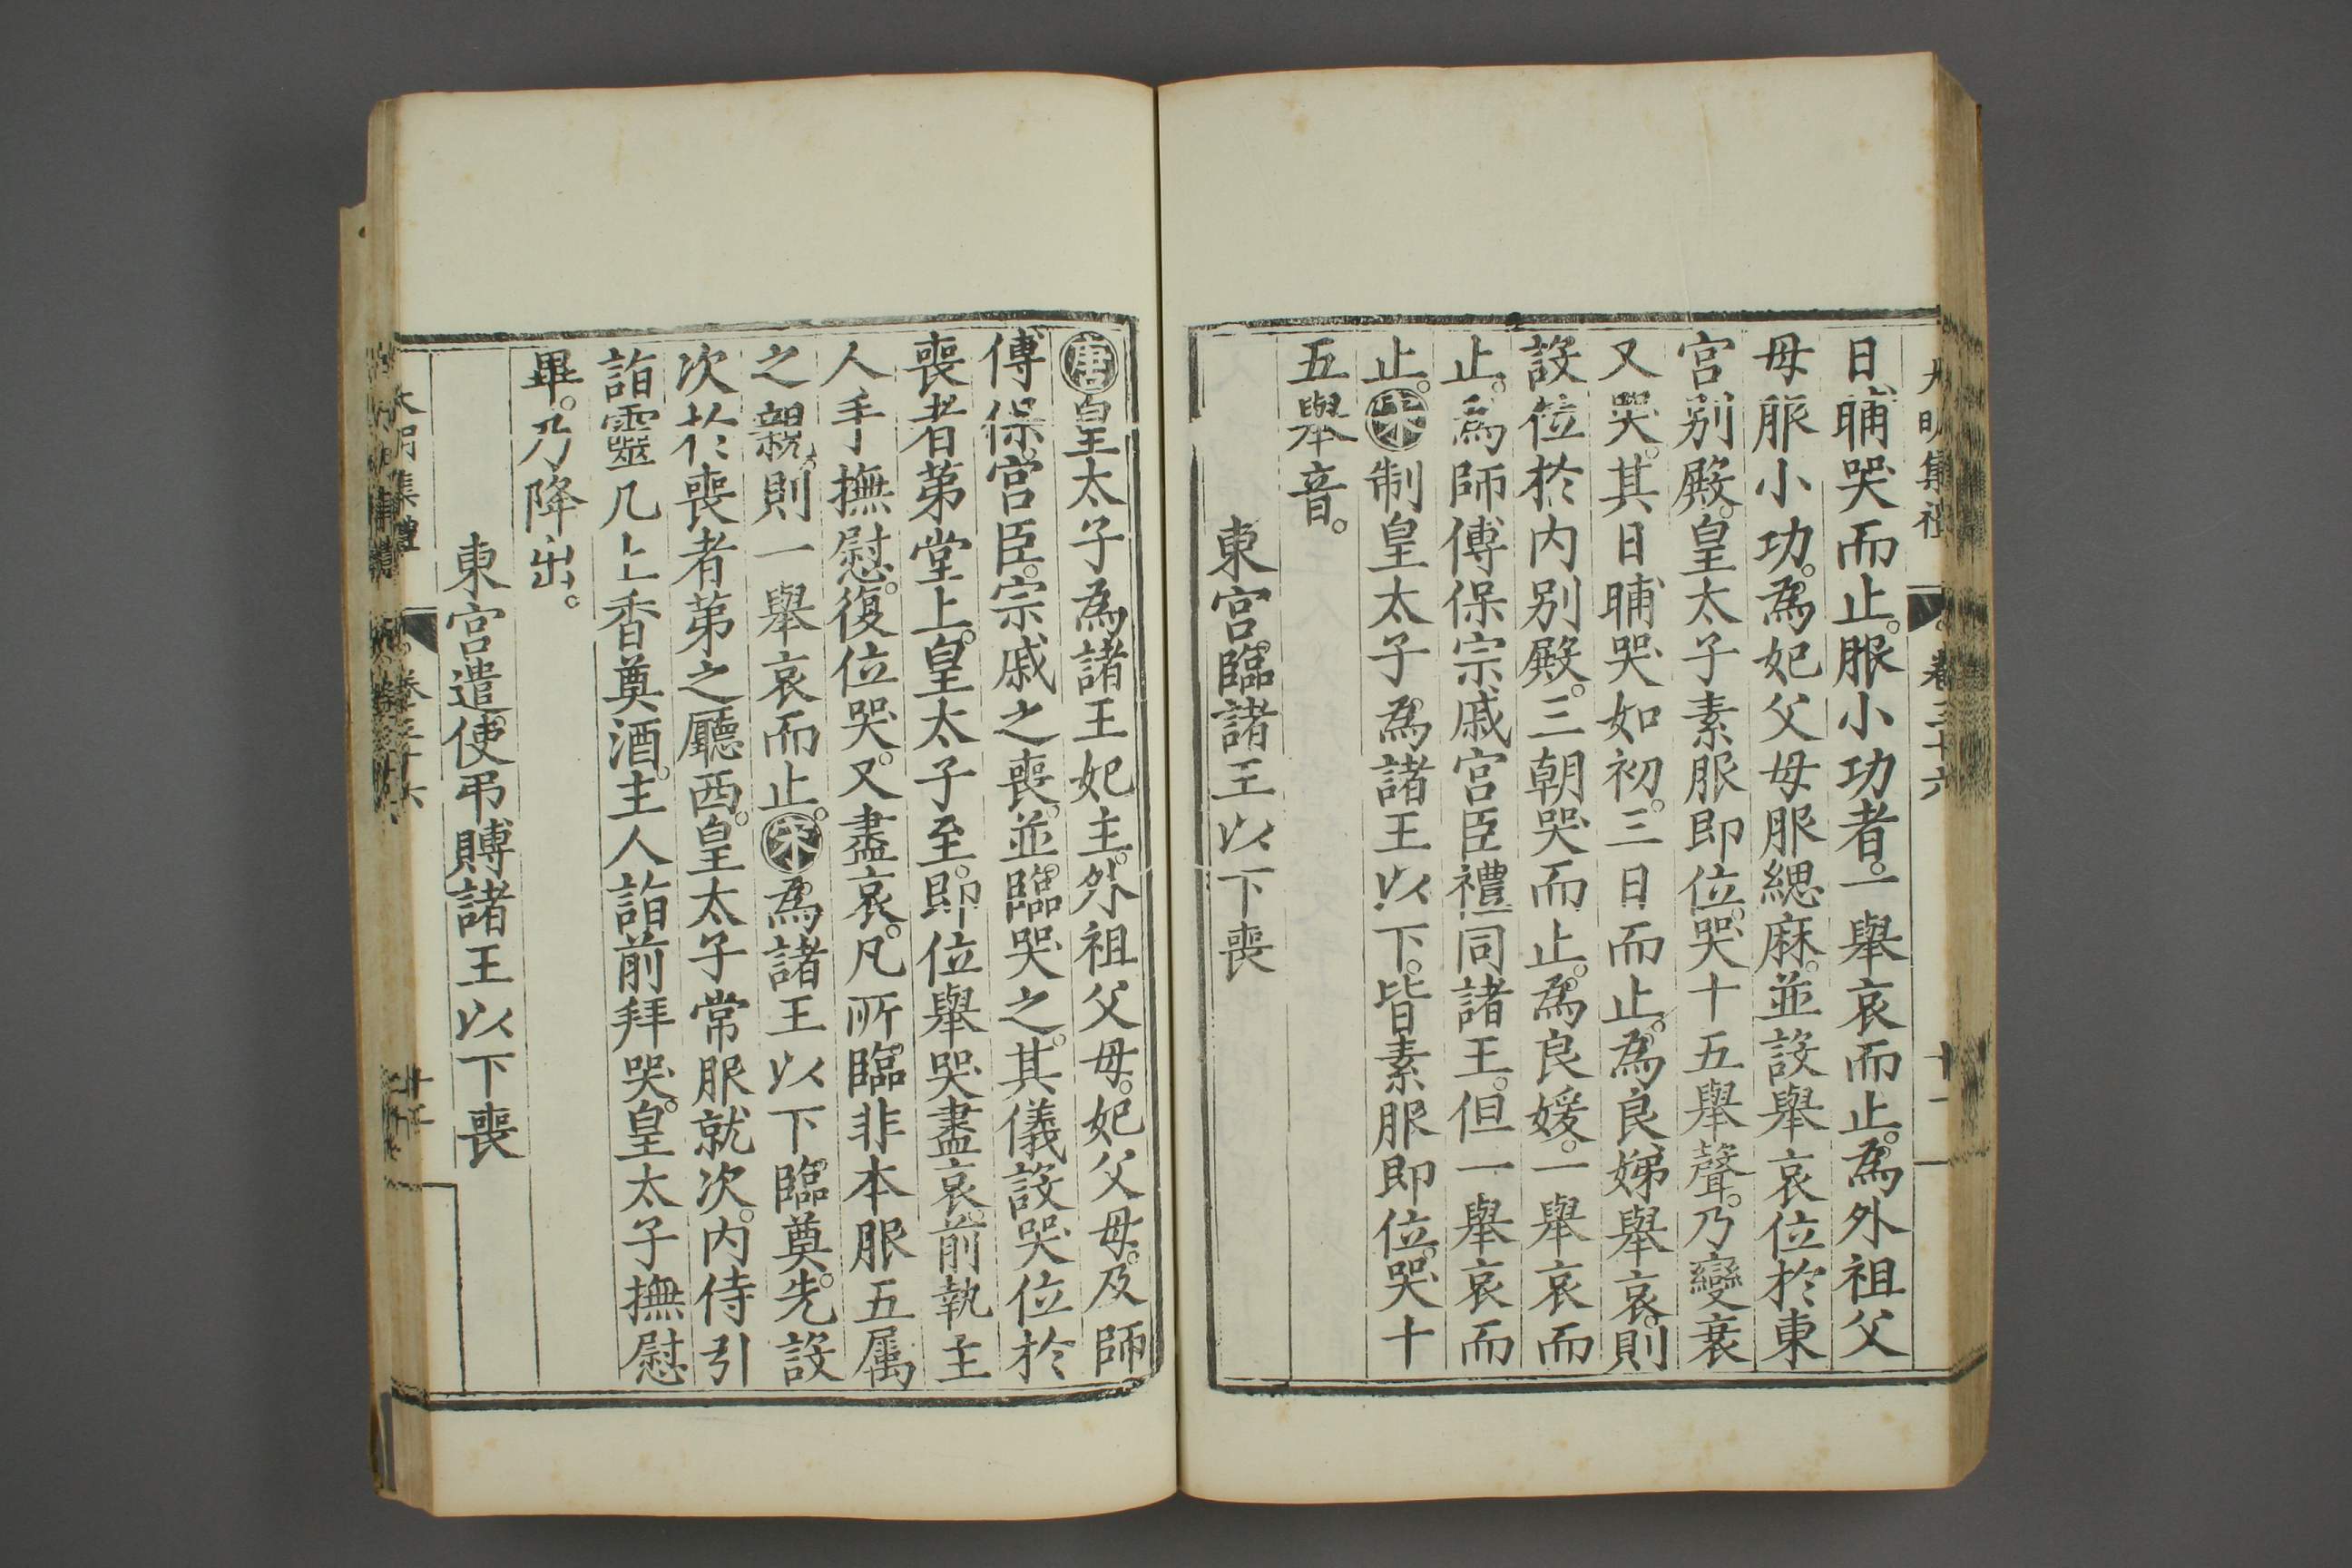 大明集禮 卷三十六 十一
日晡哭而止。服小功者。一舉哀而止。為外祖父
母服小功。為妃父母服緦麻。並設舉哀位於東
宮别殿。皇太子素服即位。哭十五舉聲。乃變衰
又哭。其日晡哭如初。三日而止。為良娣舉哀。則
設位於内别殿。三朝哭而止。為良媛。一舉哀而
止。為師傅保宗戚宮臣禮同諸王。但一舉哀而
止。宋制皇太子為諸王以下。皆素服即位。哭十
五舉音。
東宮臨諸王以下喪
唐皇太子為諸王妃主。外祖父母。妃父母。及師
傅保。宮臣。宗戚之喪。並臨哭之。其儀設哭位於
喪者第堂上。皇太子至。即位舉哭盡哀。前執主
人手撫慰。復位哭。又盡哀。凡所臨非本服五属
之親。則一舉哀而止。宋為諸王以下臨奠。先設
次於喪者第之廳西。皇太子常服就次。内侍引
詣靈几上香奠酒。主人詣前拜哭。皇太子撫慰
畢。乃降出。
東宮遣使弔賻諸王以下喪
大明集禮 卷三十六